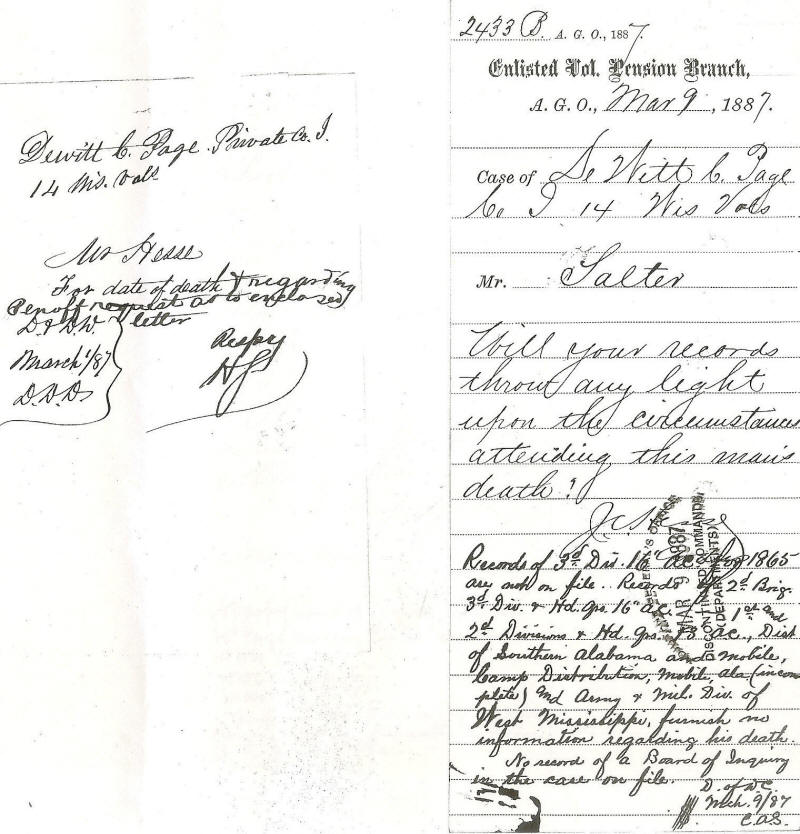 Dewitt C. Page. Private Co. I.
14 Wis. Vols
Mr Hesse
For date of death & regarding
request as to enclosed
letter
D. & D.W.
March 1/87
D.D.D.
Respy
2433 B. A. G. O., 1887.
Enlisted Vol. Pension Branch,
A. G. O., Mar 9, 1887.
Case of De Witt C. Page
Co I 14 Wis Vols
Mr. Salter
Will your records
throw any light
upon the circumstances
attending this man's
death?
MAR 9 1887
DISCONTINUED COMMANDS
(DEPARTMENTS)
Records of 3d. Div. 16" AC. for 1865
are not on file. Records of 2d. Brig.
3d. Div. & Hd. Qrs. 16" AC. 1st and
2d Divisions & Hd. Qrs. 13" AC., Dist
of Southern Alabama and Mobile,
Camp Distribution, Mobile, Ala (incom
plete) and Army & Mil. Div. of
West Mississippi, furnish no
information regarding his death.
No record of a Board of Inquiry
in the case on file.
D. of D.C.
Mch. 9/87
C.A.S.